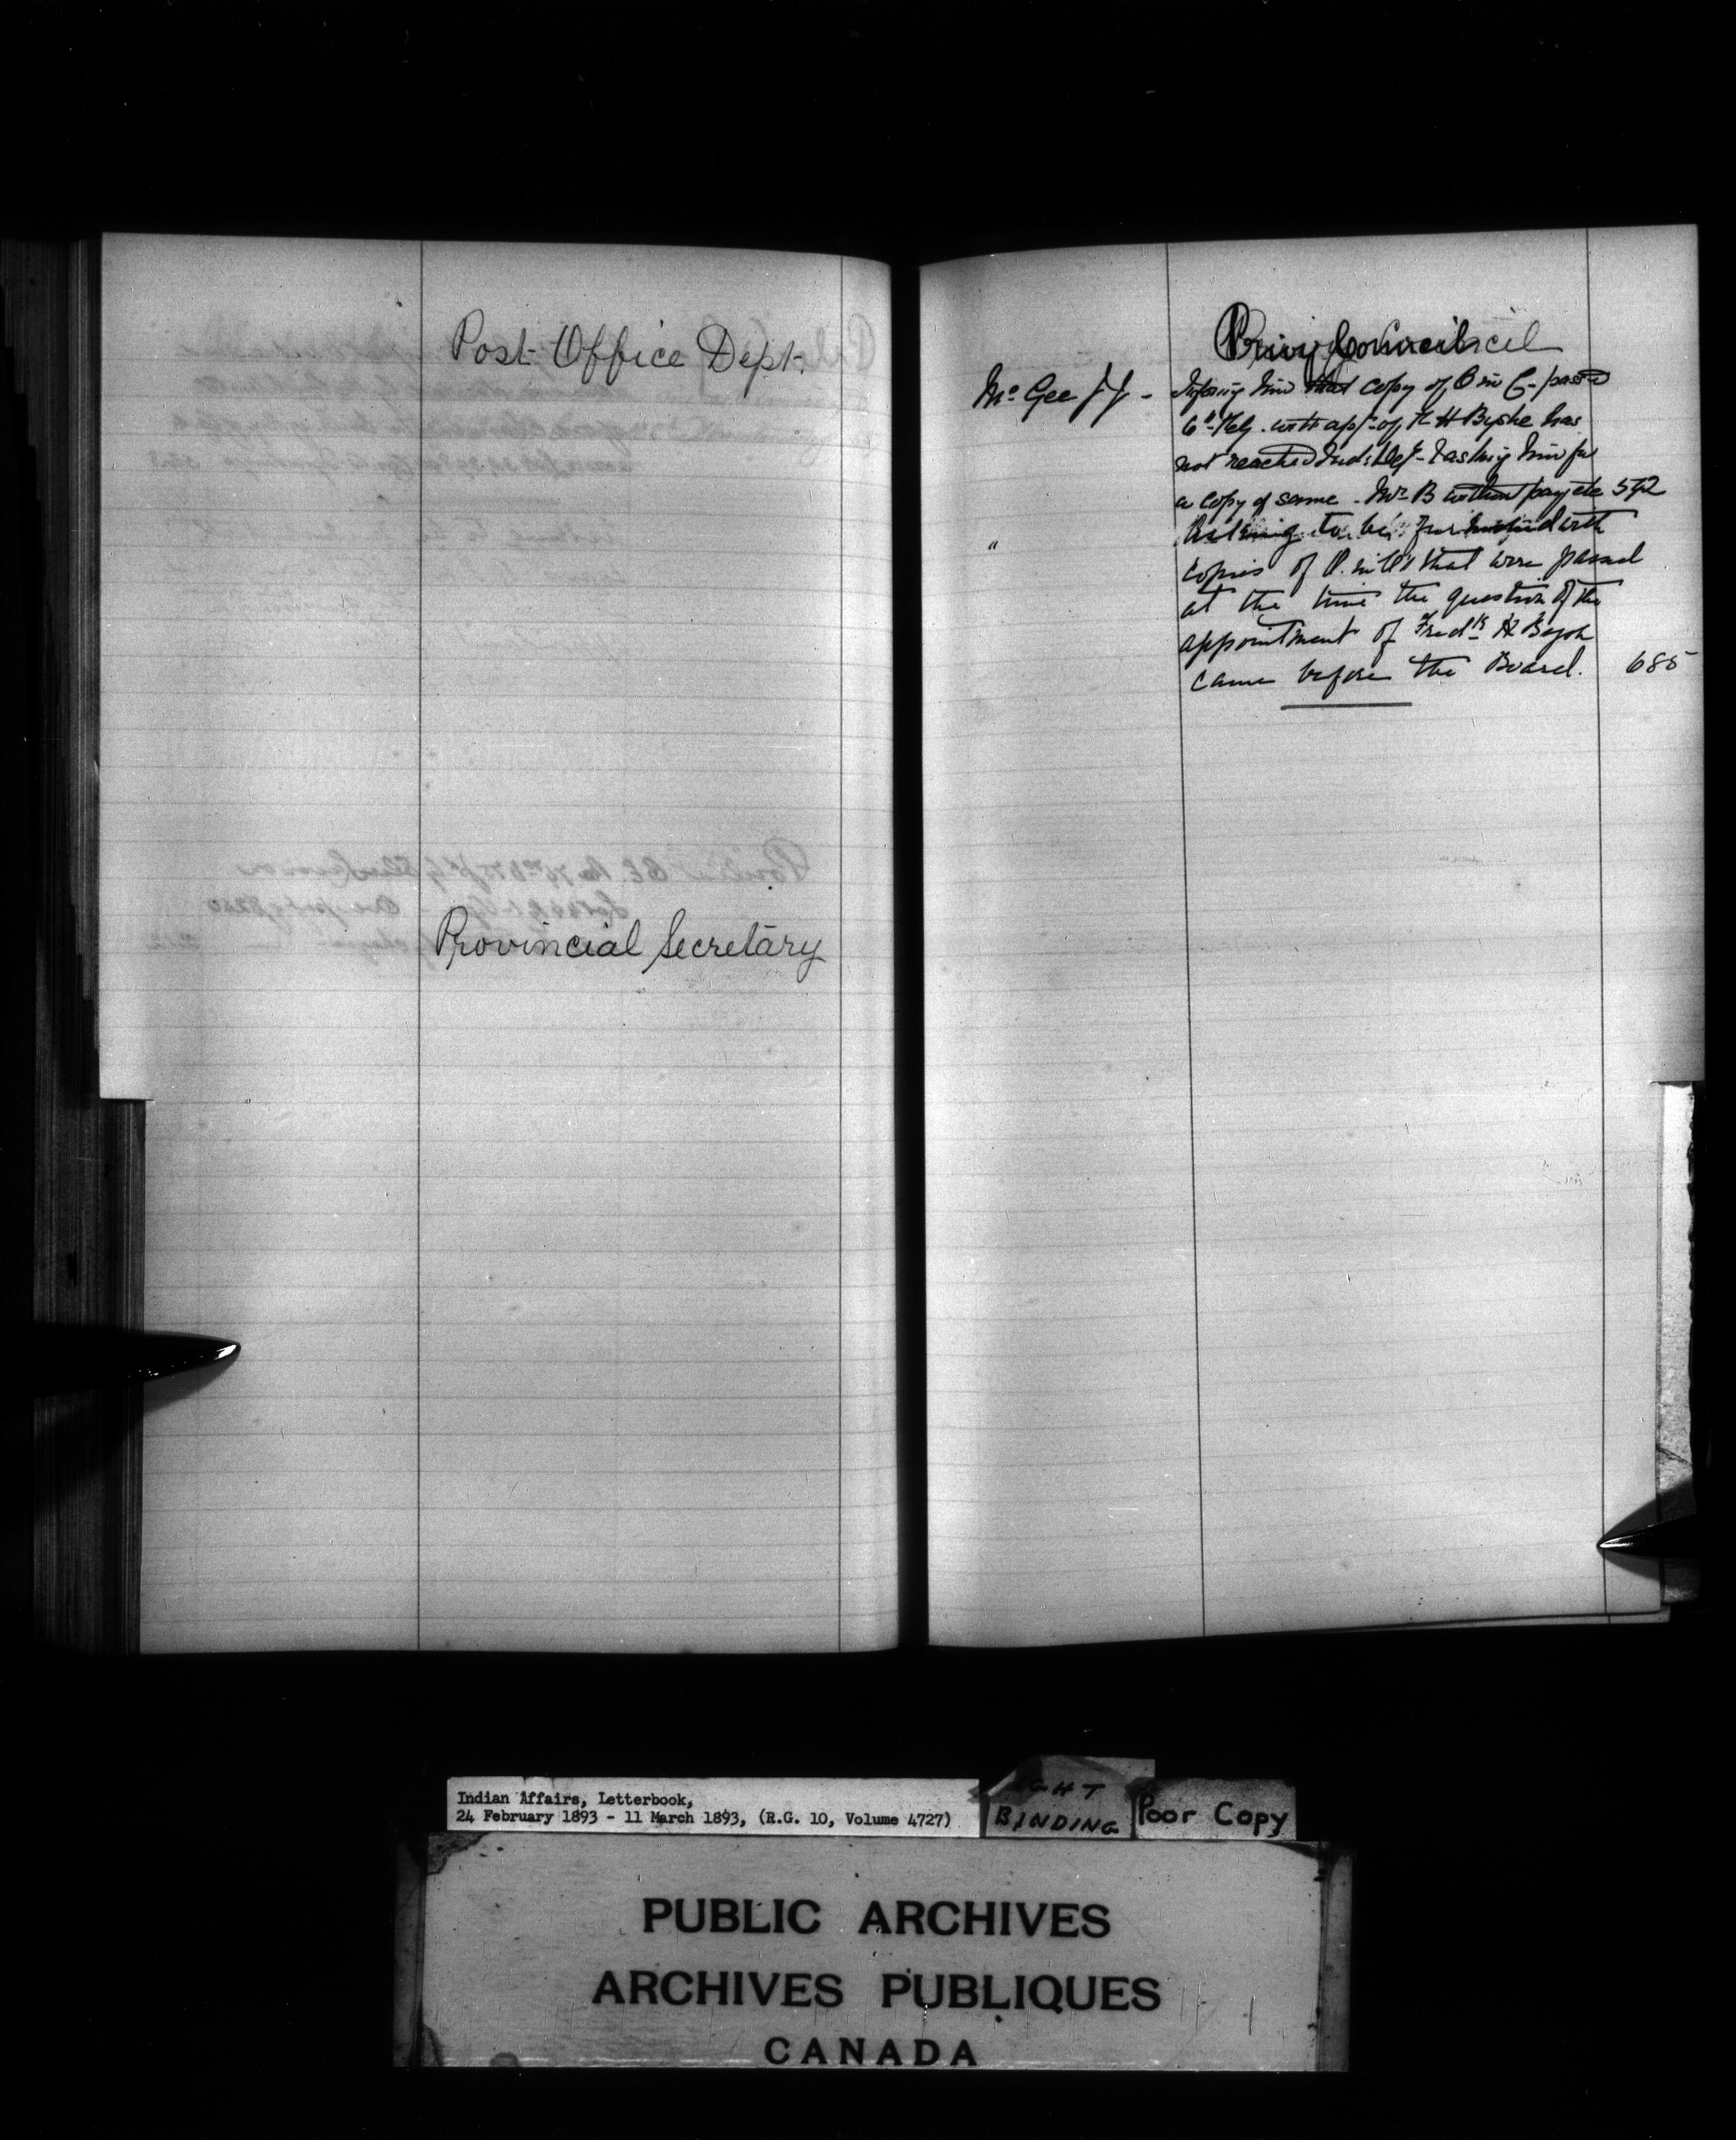 Post Office Dept.
Provincial Secretary
Privy Council
McGee J J - Informing him that copy of O in C - passed
6th Feby. with apt. of F H Byshe has
not reached Inds Dept - & asking him for
a copy of same. Mr B without pay etc 592
" Asking to be furnished with
copies of O. in C's that were passed
at the time the question of the
appointment of Fredk H Bysh
came before the Board. 685
Indian Affairs, Letterbook,
24 February 1893 - 11 March 1893, (R.G. 10, Volume 4727)
BINDING
Poor Copy
PUBLIC ARCHIVES
ARCHIVES PUBLIQUES
CANADA